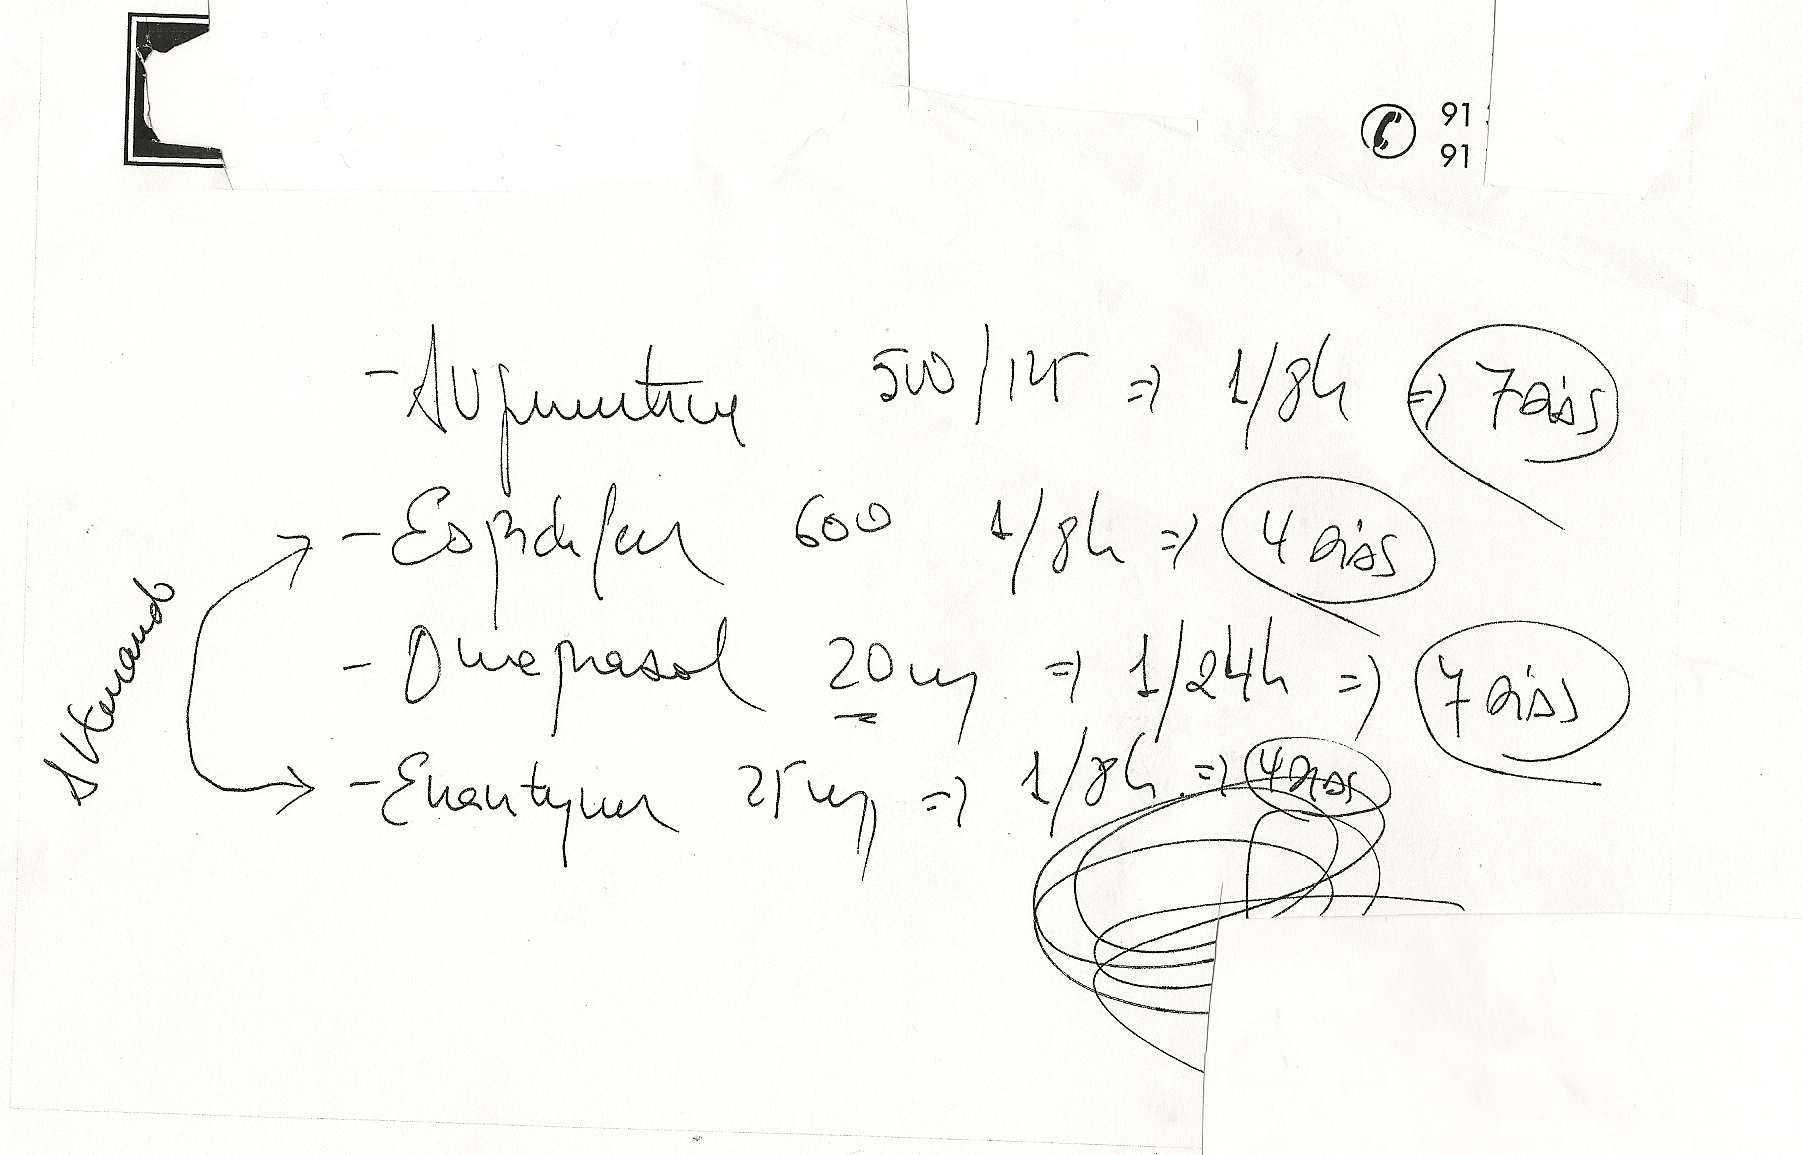 91
91
- Augmentine 500/125 => 1/8h => 7 días
- Espidifen 600 1/8h => 4 días
- Omeprasol 20 mg => 1/24h => 7 días
- Enantyum 25 mg => 1/8h => 4 días
Alternando